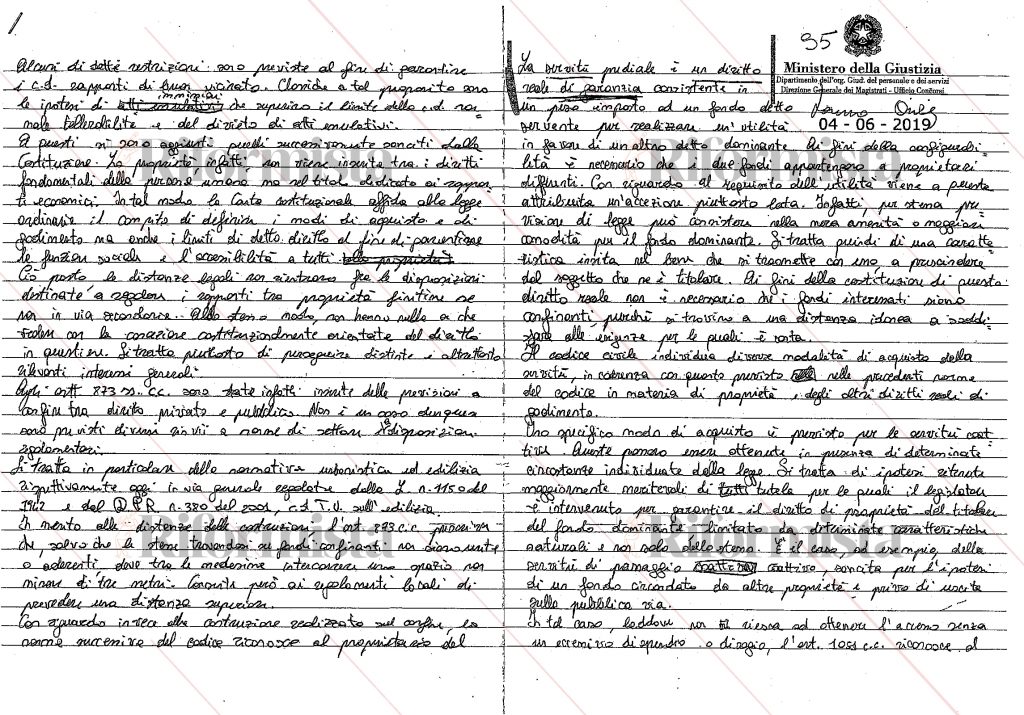 Alcuni di dette restrizioni sono previste al fine di garantire
i c.d. rapporti di buon vicinato. Classiche a tal proposito sono
immissioni
le ipotesi di che superino il limite della c.d. nor-
male tollerabilità e del divieto di atti emulativi.
A questi si sono aggiunti quelli successivamente sanciti dalla
Costituzione. La proprietà infatti non viene inserita tra i diritti
fondamentali della persona umana ma nel titolo dedicato ai rappor-
ti economici. In tal modo la Carta costituzionale affida alla legge
ordinaria il compito di definire i modi di acquisto e di
godimento ma anche i limiti di detto diritto al fine di garantirne
la funzione sociale e l'accessibilità a tutti
Ciò posto le distanze legali non rientrano fra le disposizioni
destinate a regolare i rapporti tra proprietà finitime se
non in via secondaria. Allo stesso modo, non hanno nulla a che
vedere con la concezione costituzionalmente orientata del diritto
in questione. Si tratta piuttosto di perseguire distinti e altrettanto
rilevanti interessi generali.
Agli artt. 873 ss. c.c. sono state infatti inserite delle previsioni a
confine tra diritto privato e pubblico. Non è un caso dunque
sono previsti diversi rinvii a norme di settore disposizioni
regolamentari.
Si tratta in particolare della normativa urbanistica ed edilizia
rispettivamente oggi in via generale regolate dalla L. n. 1150 del
1942 e dal D.P.R. n. 380 del 2001, c.d. T.U. sull'edilizia.
In merito alle distanze delle costruzioni l'art. 873 c.c. prevede
che, salvo che le stesse trovandosi su fondi confinanti non siano unite
o aderenti, deve tra le medesime intercorrere uno spazio non
minore di tre metri. Consente però ai regolamenti locali di
prevedere una distanza superiore.
Con riguardo invece alla costruzione realizzata sul confine, la
norma successiva del codice riconosce al proprietario del
95
Ministero della Giustizia
Dipartimento dell'org. Giud. del personale e dei servizi
Direzione Generale dei Magistrati - Ufficio Concorsi
04 - 06 - 2019
La servitù prediale è un diritto
reale di garanzia consistente in
un peso imposto ad un fondo detto
servente per realizzare un'utilità
in favore di un altro detto dominante. Ai fini della configurabi-
lità è necessario che i due fondi appartengano a proprietari
differenti. Con riguardo al requisito dell'utilità viene a questa
attribuita un'accezione piuttosto lata. Infatti, per stessa pre-
visione di legge può consistere nella mera amenità o maggiore
comodità per il fondo dominante. Si tratta quindi di una caratte-
ristica insita nel bene che si trasmette con esso a prescindere
dal soggetto che ne è titolare. Ai fini della costituzione di questo
diritto reale non è necessario che i fondi interessati siano
confinanti purché si trovino a una distanza idonea a soddi-
sfare alle esigenze per le quali è sorta.
Il codice civile individua diverse modalità di acquisto della
servitù, in coerenza con quanto previsto nelle precedenti norme
del codice in materia di proprietà e degli altri diritti reali di
godimento.
Uno specifico modo di acquisto è previsto per le servitù coat-
tive. Queste possono essere ottenute in presenza di determinate
circostanze individuate dalla legge. Si tratta di ipotesi ritenute
maggiormente meritevoli di tutela per le quali il legislatore
è intervenuto per garantire il diritto di proprietà del titolare
del fondo dominante limitato a determinate caratteristiche
naturali e non solo dello stesso. È il caso, ad esempio, della
servitù di passaggio coattivo sancita per l'ipotesi
di un fondo circondato da altre proprietà e privo di uscita
sulla pubblica via.
In tal caso, laddove non si riesca ad ottenere l'accesso senza
un eccessivo dispendio o disagio, l'art. 1051 c.c. riconosce al
Riformista
Riformista
Riformista
Riformista